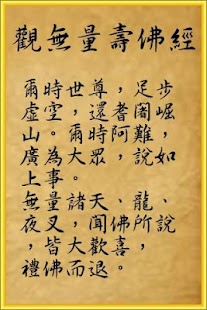 觀無量壽佛經
爾時世尊，足步
虛空。還耆闍崛
山。爾時阿難，
廣為大眾，說如
上事。
無量諸天、龍、
夜叉，聞佛所說
，皆大歡喜，
禮佛而退。